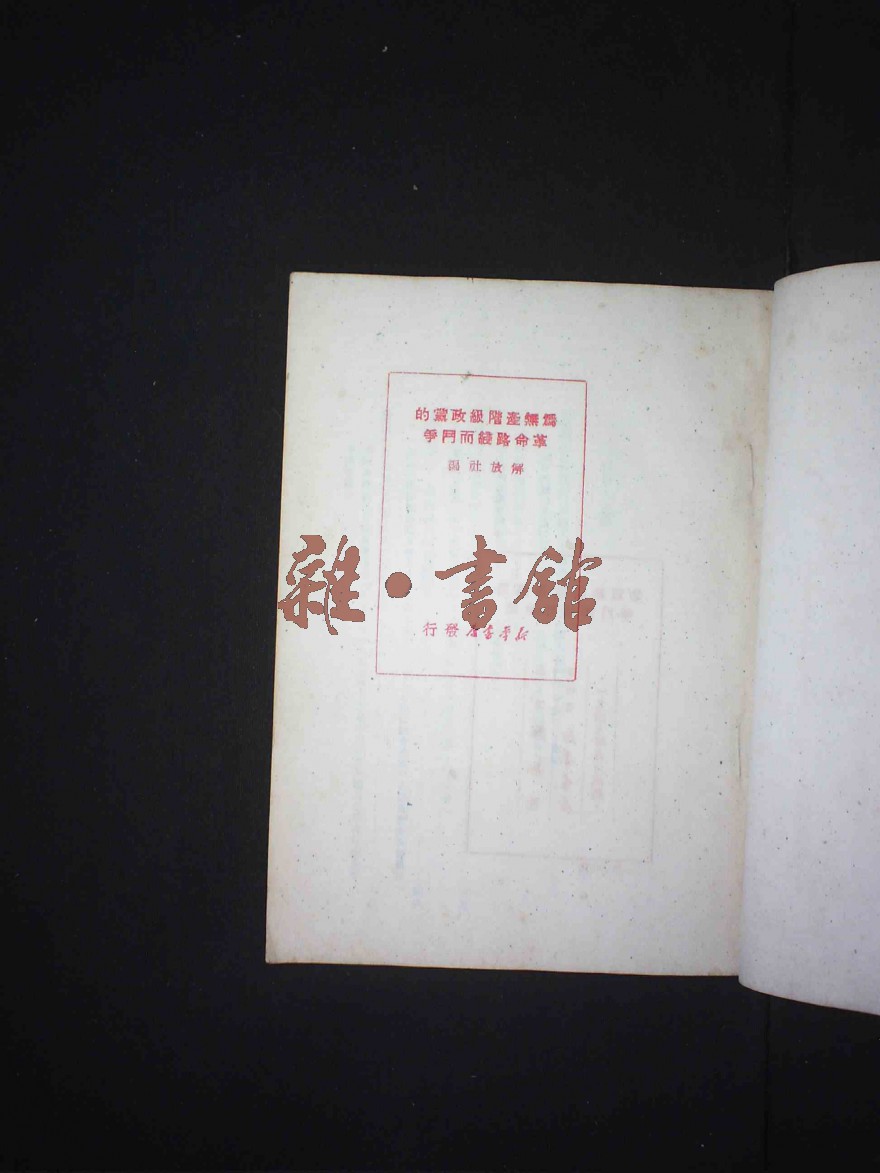 爲無產階級政黨的
革命路綫而鬥爭
解放社編
雜·書館
新華書店發行